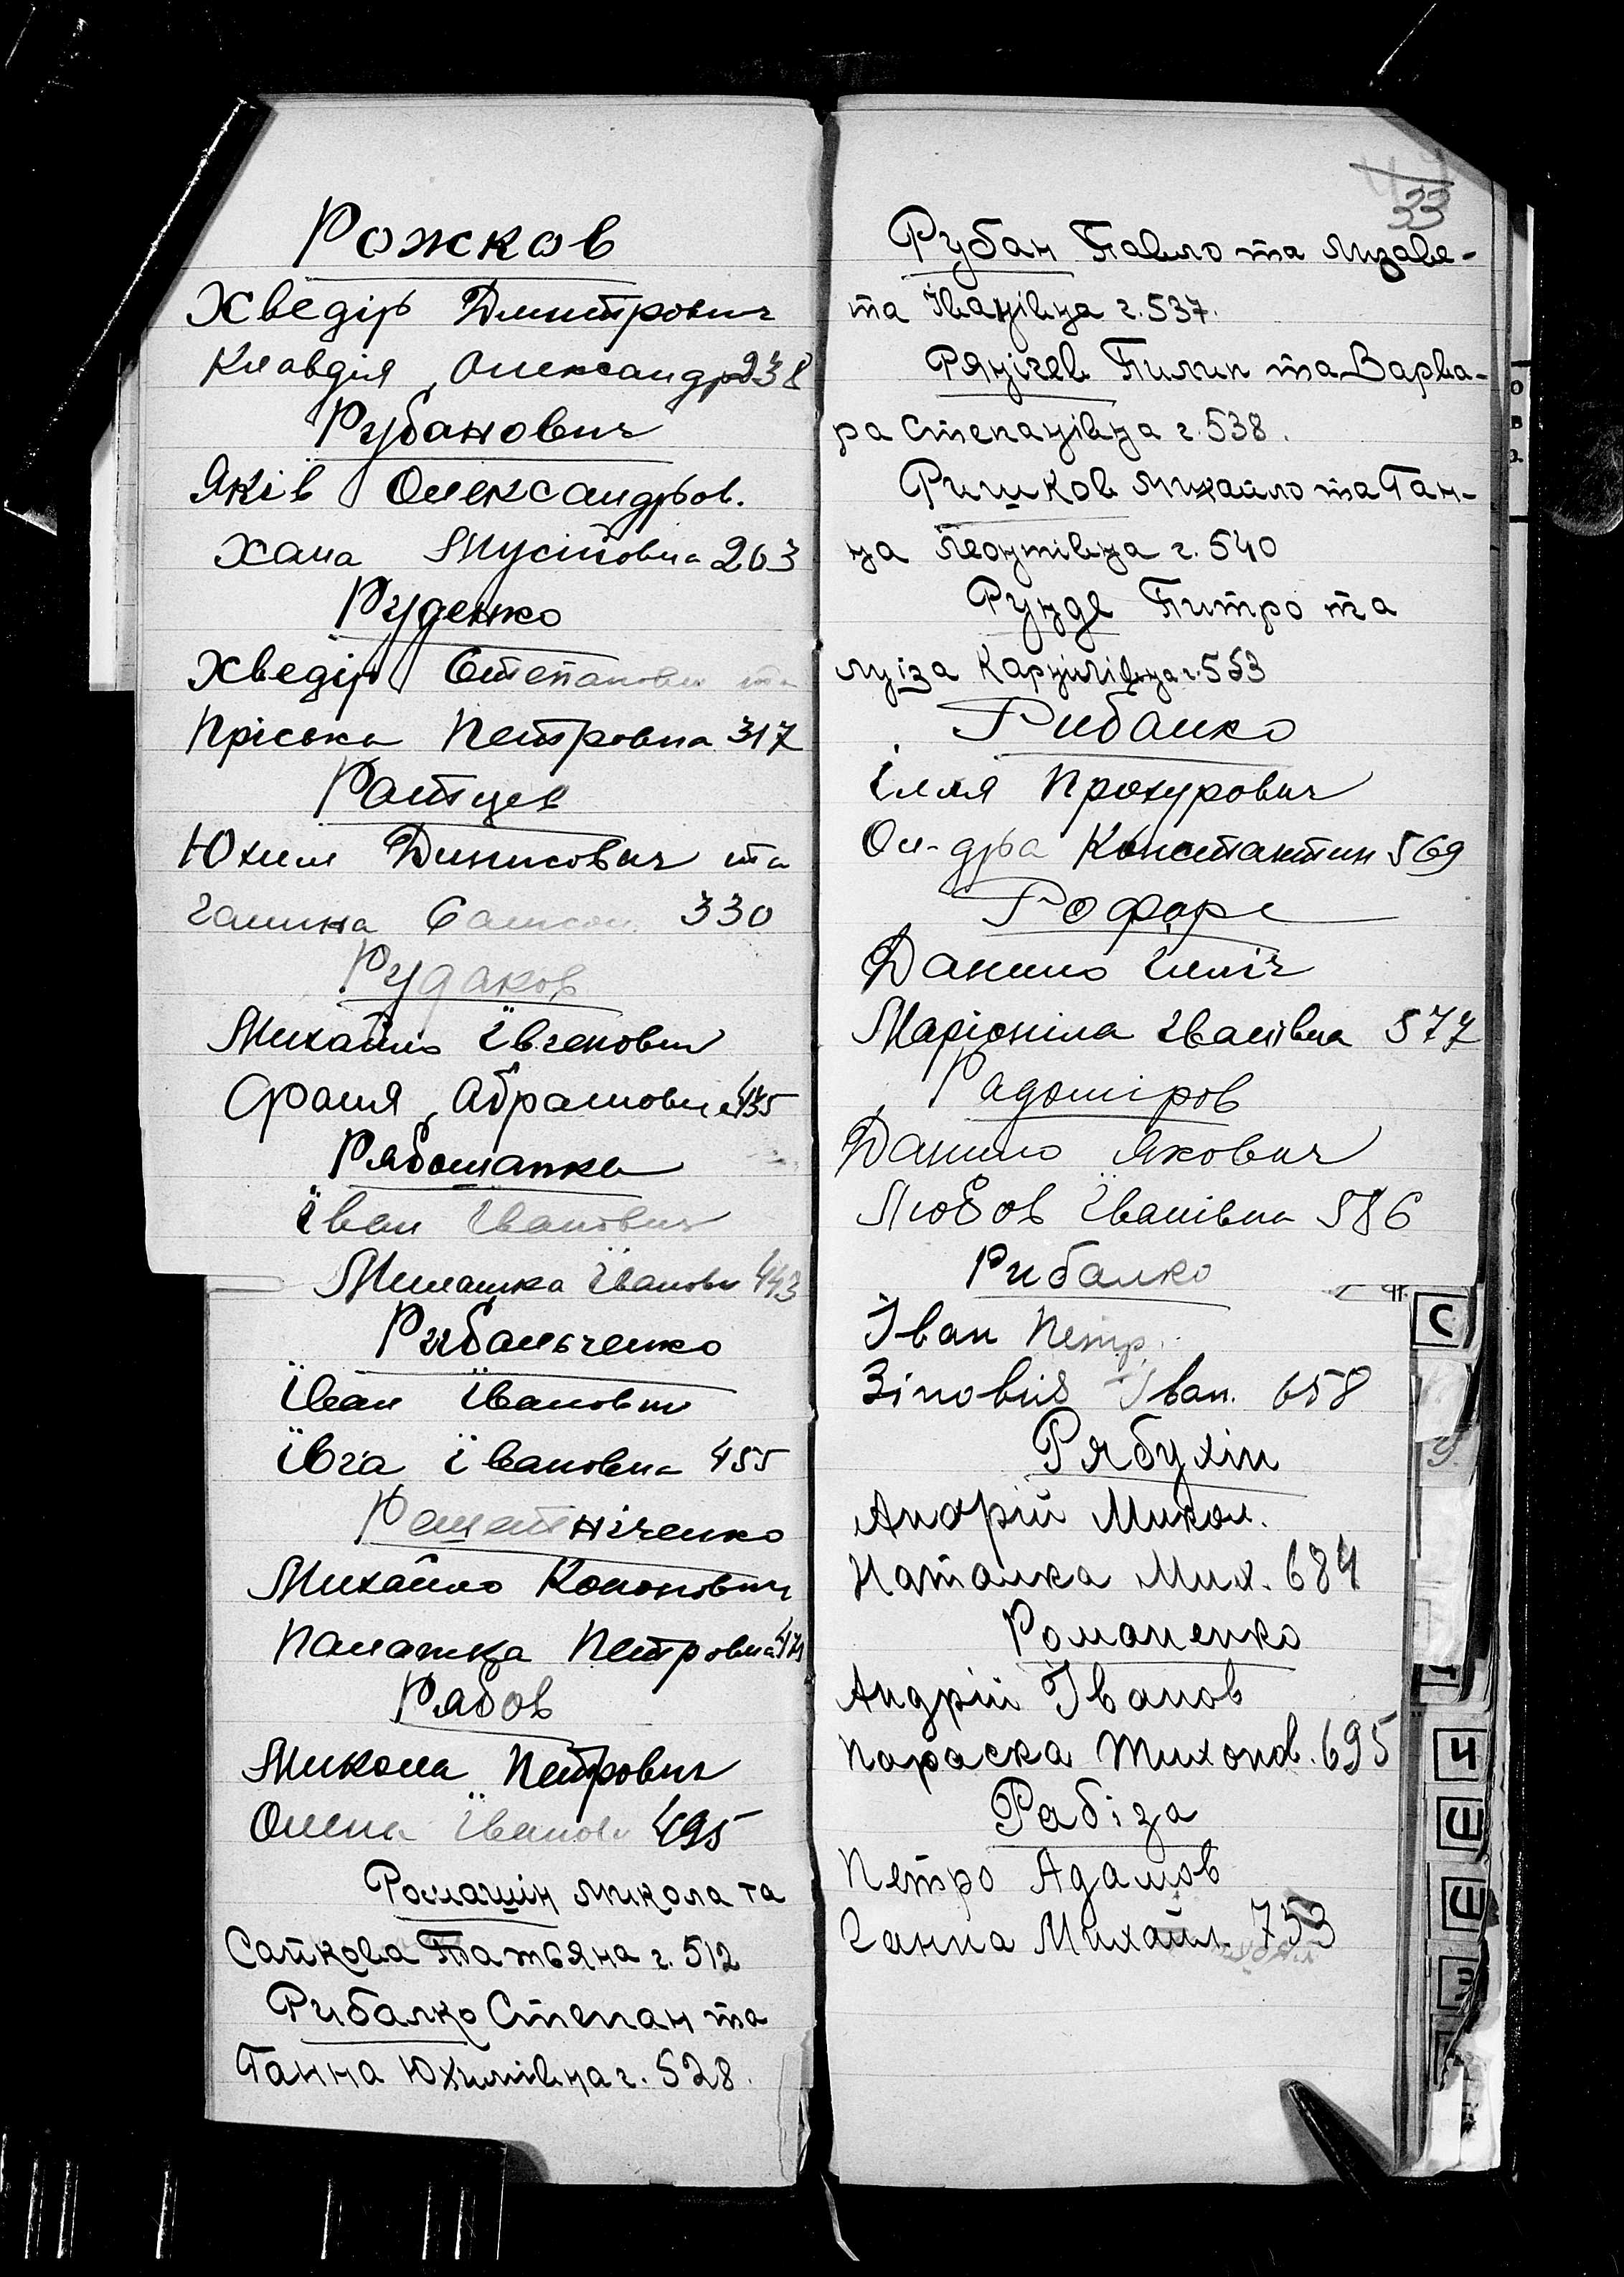 Рожков
Хведірь Дмитрович
Клавдія Олександр 238
Рубанович
Яків Олександров.
Хана Мусіївна 263
Руденко
Хведір Степанови та
Пріська Петровна 317
Ратцев
Юхим Динисович та
Галина Самсон. 330
Рудаков
Михайло Ївгенович
Фаня Абрамовна 435
Рябошапка
Їван Їванович
Милашка Їванов 443
Рибальченко
Їван Їванович
Ївга Їванovна 455
Решетніченко
Михайло Кононович
Палажка Петровна 474
Рябов
Микола Петрович
Олена Їванов 495
Ромашін Микола та
Сайкова Татьяна г. 512
Рибалко Степан та
Ганна Юхимівна г. 528.
33
Рубан Павло та Лизаве-
та Іванівна г. 537.
Рянічев Пилип та Варва-
ра Степанівна г. 538.
Ришков Михайло та Ган-
на Леонтівна г. 540
Рунде Питро та
Луіза Карнилівна г. 553
Рибалко
Ілля Прохурович
Ол-дра Константин 569
Данило Ілліч
Маріонила Іванівна 577
Радоміров
Данило Якович
Любов Іванівна 586
Рибалко
Іван Петр.
Зіновія Іван. 658
Рябухін
Андрій Микол.
Наталка Мих. 684
Романенко
Андрій Іванов
Параска Тихонов. 695
Рабіза
Петро Адамов
Ганна Михайл. 753
С
Ч
Ш
Щ